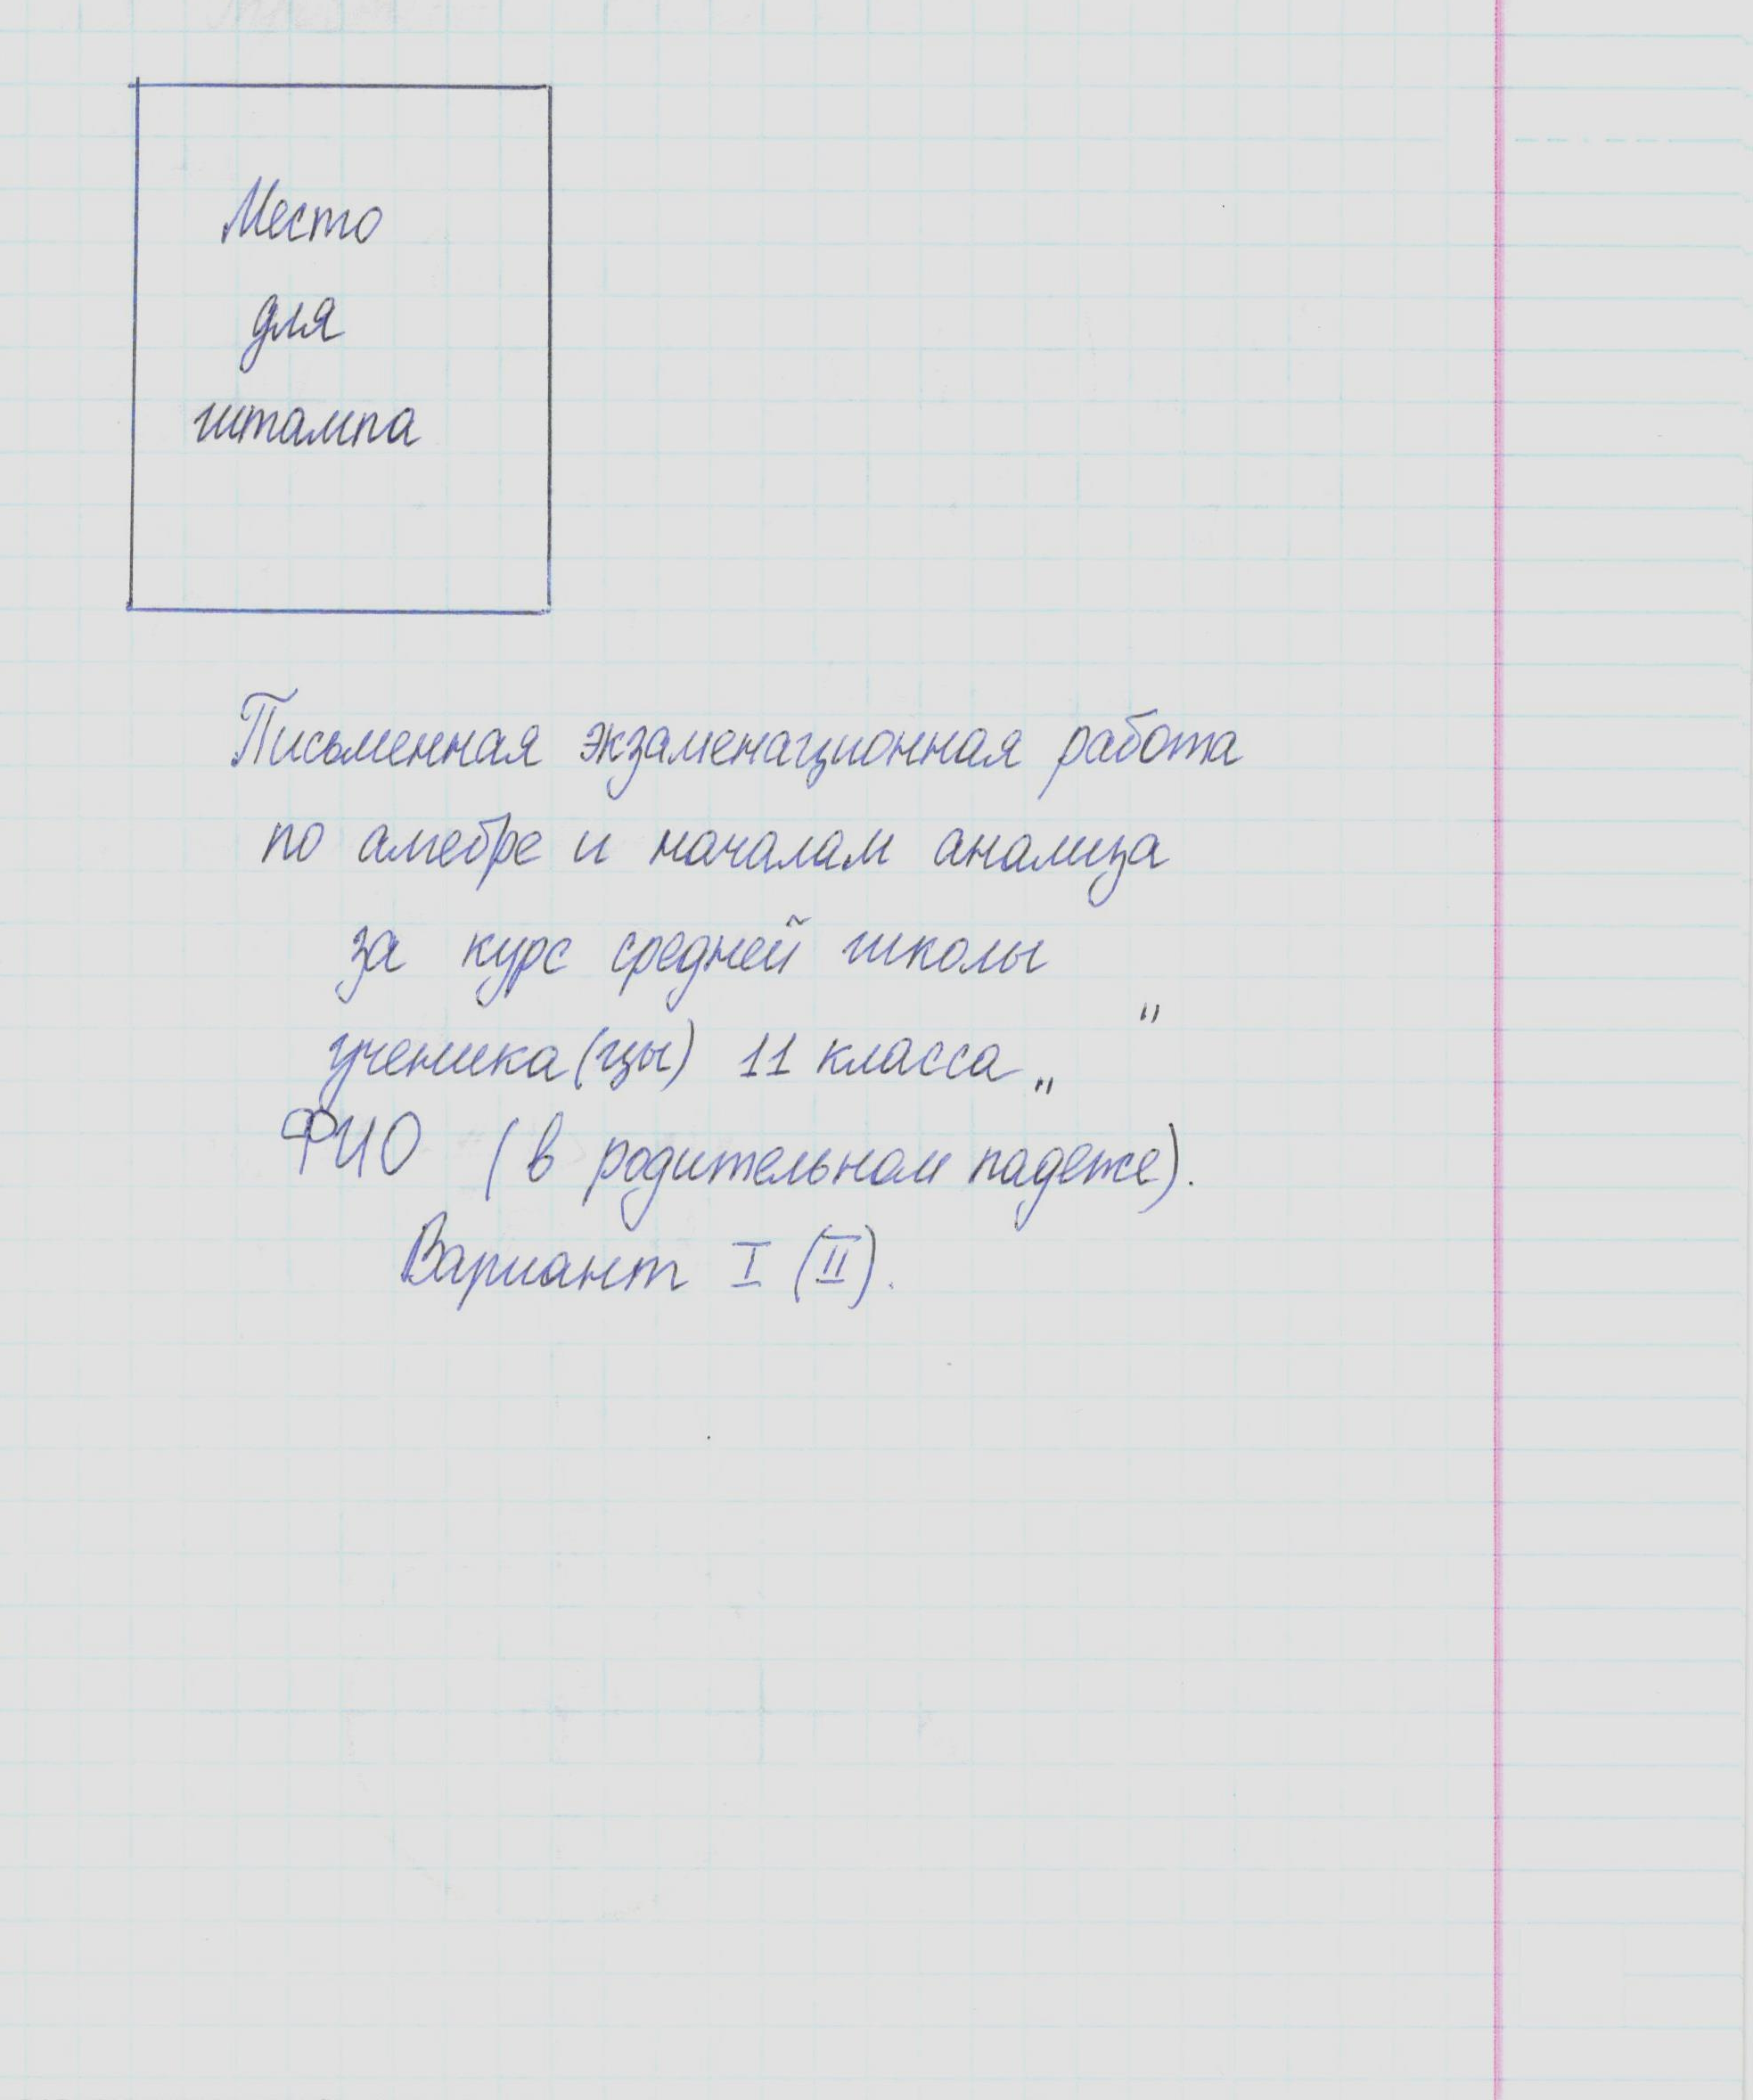 Место
для
штампа
Письменная экзаменационная работа
по алгебре и началам анализа
за курс средней школы
ученика(цы) 11 класса „ "
ФИО (в родительном падеже).
Вариант I (II).